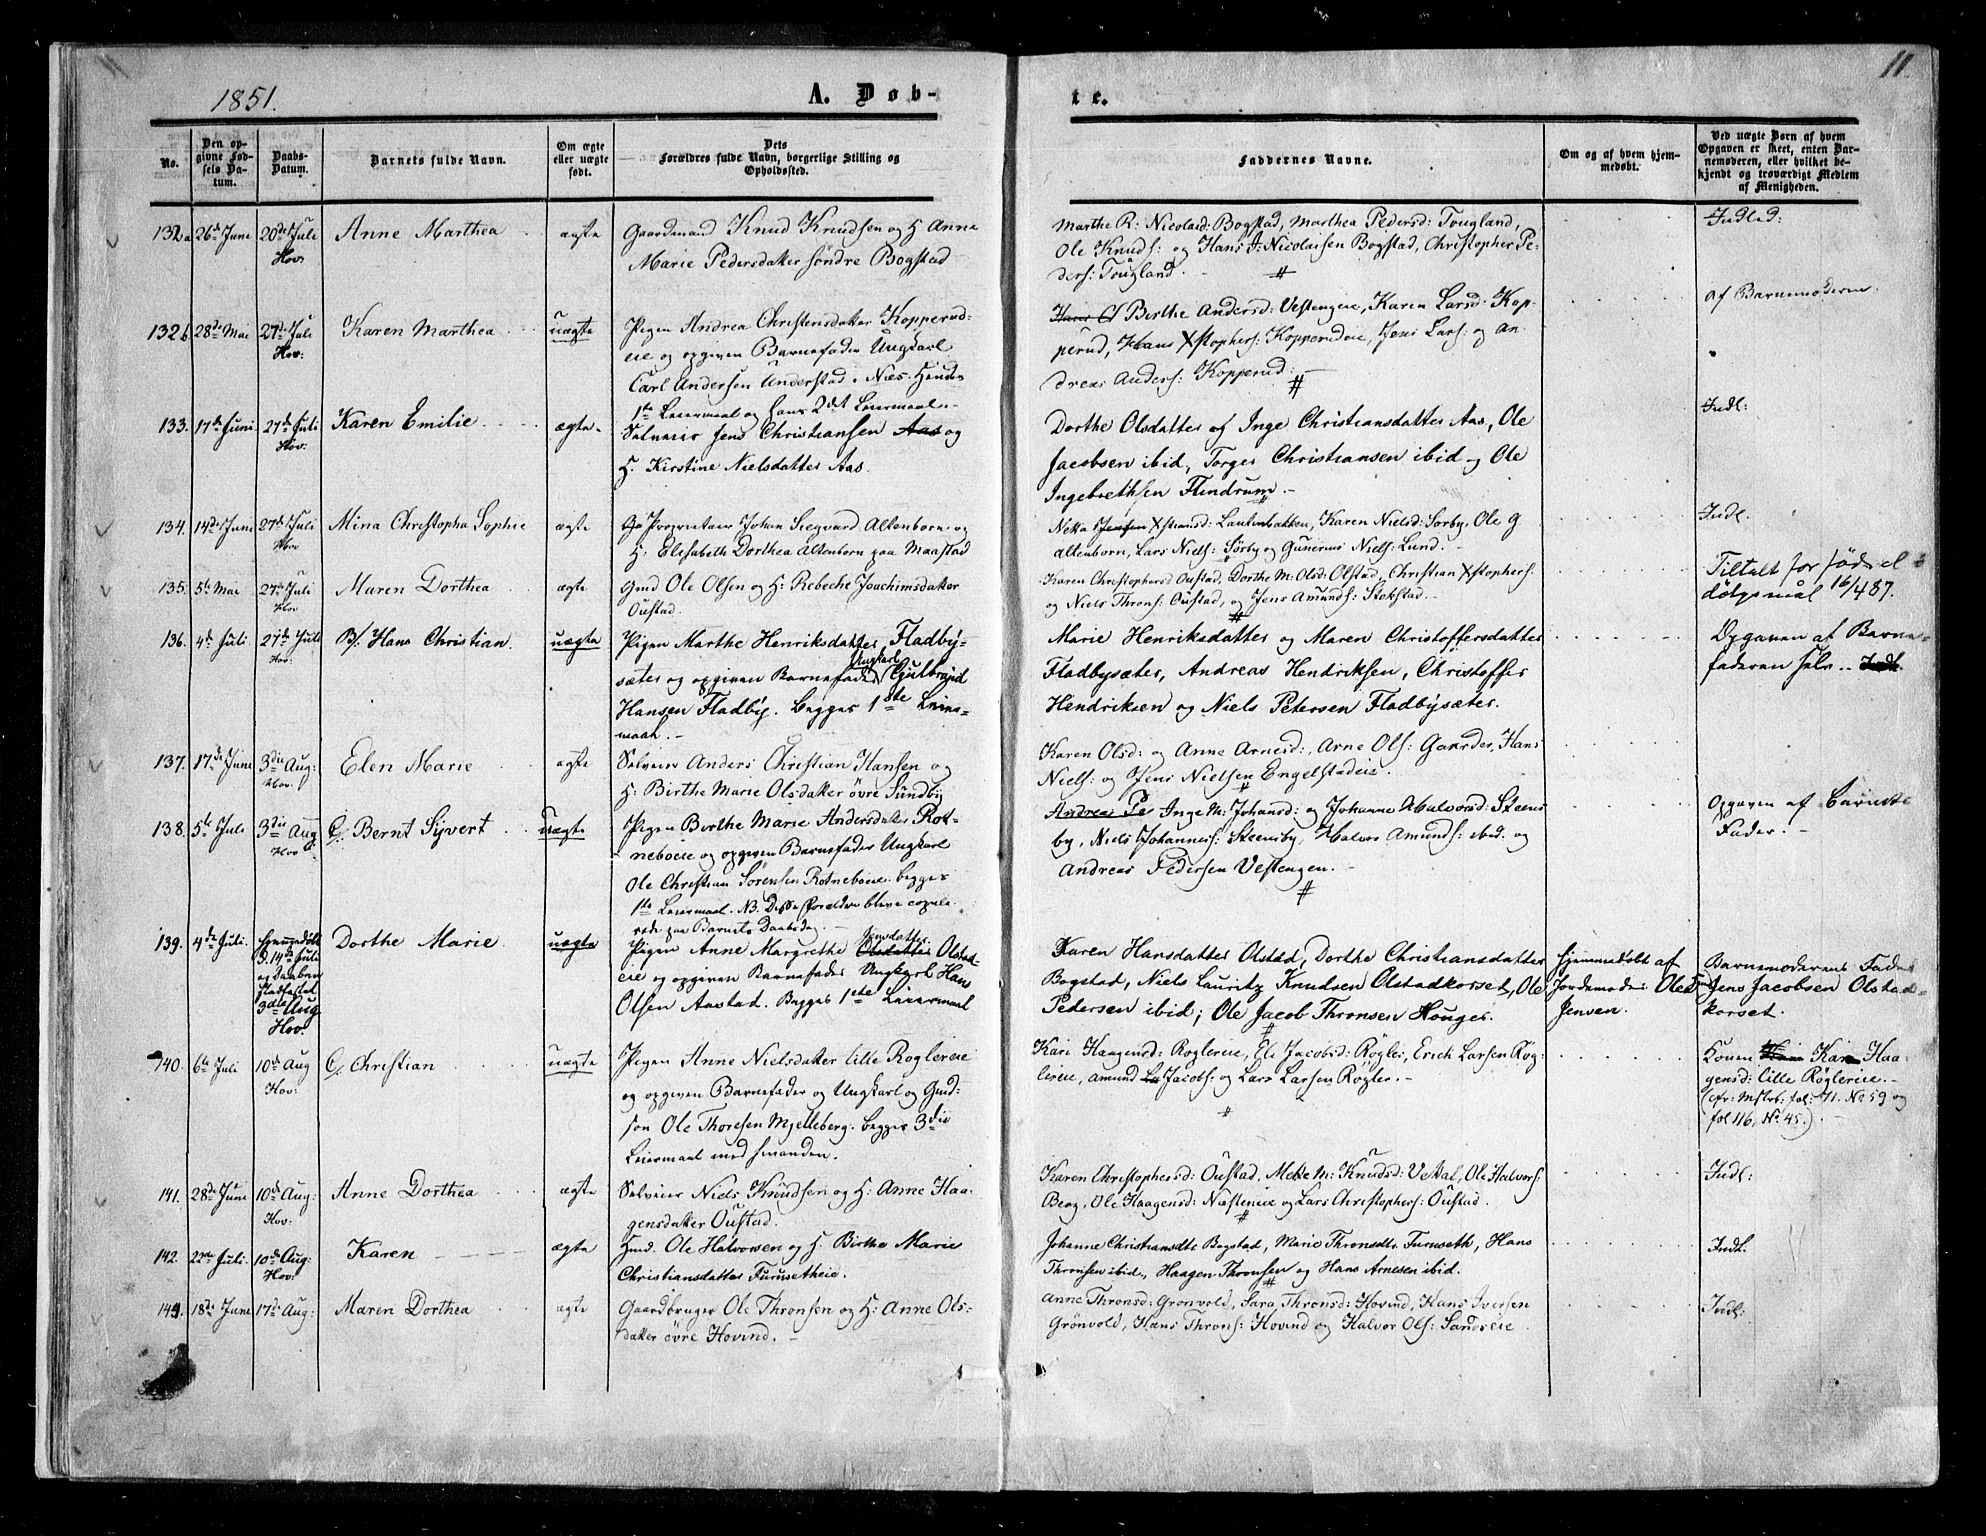 11.
1851.
A. Døb-
te.
No.
Den op-
givne Fød-
sels Da-
tum.
Daabs-
Datum.
Barnets fulde Navn.
Om ægte
eller uægte
født.
Dets
Forældres fulde Navn, borgerlige Stilling og
Opholdssted.
Faddernes Navne.
Om og af hvem hjem-
medøbt.
Ved uægte Børn af hvem
Opgaven er skeet, enten Bar-
nemoderen, eller hvilket be-
kjendt og troværdigt Medlem
af Menigheden.
132a 26de Juni 20de Juli Hov: Anne Marthea ægte
Gaardmand Knud Knudsen og H. Anne
Marie Pedersdatter søndre Bogstad
Marthe R: Nicolaid: Bogstad, Marthea Pedersd: Tougland,
Ole Knuds: og Hans J: Nicolaisen Bogstad, Christopher Pe-
ders: Tougland.
Indled:
132b 28de Mai 27de Juli Hov: Karen Marthea uægte
Pigen Andrea Christensdatter Kopperud-
eie og opgiven Barnefader Ungkarl
Carl Andersen Understad i Næs. Hendes
1ste Leiermaal og hans 2det Leiermaal.
Birthe Andersd: Vestengeie, Karen Larsd: Kop-
perud, Hans Xstophers: Kopperudeie, Jens Lars: og An-
dreas Anders: Kopperud:
af Barnemoderen
133. 17de Juni 27de Juli Hov. Karen Emilie ægte
Selveier Jens Christiansen Aas og
H. Kirstine Nielsdatter Aas.
Dorthe Olsdatter af Inge Christiansdatter Aas, Ole
Jacobsen ibid, Torger Christiansen ibid og Ole
Ingebrethsen Flindrum.
Indl:
134. 14de Juni 27de Juli Hov Mina Christopha Sophie ægte
Proprietair Johan Siegvard Altenborn og
H: Elisabeth Dorthea Altenborn paa Maastad
Netta Jensen Xstiansd: Lautenbakken, Karen Nielsd: Sørby, Ole G
Altenborn, Lars Niels: Sørby og Gunerius Niels: Lund.
Indl.
135. 5te Mai 27de Juli Hov Maren Dorthea ægte
Gmd Ole Olsen og H: Rebeche Joachimsdatter
Oustad.
Karen Christophersd Oustad, Dorthe M: Olsd: Olstad, Christian Xstophers:
og Niels Throns: Oustad, og Jens Amunds: Stokstad.
Tiltalt for føds el
døbsmål 16/4 87.
136. 4de Juli 27de Juli Hov: B/. Hans Christian. uægte
Pigen Marthe Henriksdatter Fladby-
sæter og opgiven Barnefader Ungkarl Gulbrand
Hansen Fladby. Begges 1ste Leier-
maal.
Marie Henriksdatter og Maren Christoffersdatter
Fladbysæter, Andreas Hendriksen, Christoffer
Hendriksen og Niels Petersen Fladbysæter.
Opgaven af Barne-
faderen selv. Indl.
137. 17de Juni 3die Aug: Hov. Elen Marie ægte
Selveier Anders Christian Hansen og
H: Birthe Marie Olsdatter øvre Sundby
Karen Olsd: og Anne Arnesd:, Arne Ols: Gaarder, Hans
Niels: og Jens Nielsen Engelstadeie.
138. 5te Juli 3die Aug Hov: C/. Bernt Syvert uægte
Pigen Berthe Marie Andersdatter Rot-
neboeie og opgiven Barnefader Ungkarl
Ole Christian Sørensen Rotneboeie. begges
1ste Leiermaal. NB. Disse Forældre bleve copule-
rede paa Barnets Daabsdag.
Andreas Pe Inge M: Johansd: og Johanne Halvorsd: Steens
by, Niels Johanness: Steensby, Halvor Amunds: ibid. og
Andreas Pedersen Vestengen.
Opgaven af Barnets
Fader.
139. 4de Juli. Hjemmedøbt d. 14de Juli og Daaben stadfæstet 3die Aug Hov. Dorthe Marie uægte
Pigen Anne Margrethe Jensdatter Olsdatter Olstad-
eie og opgiven Barnefader Ungkarl Hans
Olsen Aastad. Begges 1ste Leiermaal
Karen Hansdatter Olstad, Dorthe Christiansdatter
Bogstad, Niels Lauritz Knudsen Olstadkorset, Ole
Pedersen ibid; Ole Jacob Thronsen Houger.
Hjemmedøbt af
Jordemoder Oleа
Jensen.
Barnemoderens Fader
Jens Jacobsen Olstad-
korset.
140. 6te Juli 10de Aug Hov: C/. Christian uægte
Pigen Anne Nielsdatter lille Roglereie
og opgiven Barnefader og Ungkarl og Gmd:
søn Ole Thoresen Mjelleberg. begges 3die
Leiermaal med hinanden.
Kari Haagensd: Roglereie, Eli Jacobsd: Rogler, Erich Larsen Røg-
lereie, Amund La Jacobs: og Lars Larsen Røgler.
Konen Kari Haa-
gensd: lille Røglereie.
(cfr: Mstrb: fol: 71. No 59 og
fol 116, No. 45.)
141. 28de Juni 10de Aug: Hov: Anne Dorthea ægte
Selveier Niels Knudsen og H: Anne Haa-
gensdatter Oustad.
Karen Christophersd: Oustad, Mette M: Knudsd: Vestal, Ole Halvors:
Berg, Ole Haagensd: Næsteneie og Lars Christophers: Oustad.
Indl:
142. 22de Juli. 10de Aug: Hov: Karen ægte
Hmd. Ole Halvorsen og H. Birthe Marie
Christiansdatter Furusetheie.
Johanne Christiansdtr Bogstad, Marie Thronsdtr Furuseth, Hans
Thronsen ibid., Haagen Thronsen og Hans Arnesen ibid.
Indl.
143. 18de Juni 17de Aug: Maren Dorthea ægte
Gaardbruger Ole Thronsen og H: Anne Ols-
datter øvre Hovind.
Anne Thronsd: Grønvold, Sara Thronsd: Hovind, Hans Iversen
Grønvold, Hans Throns: Hovind og Halvor Ols: Sandseie
Indl: